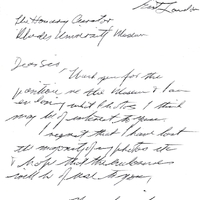 East London
The Honorary Curator
Rhodes University Museum
Dear Sir,
Thank you for the
in the Museum & I am
photos I think
may be of interest to you.
I regret that I have lost
the majority of my photos etc
& hope that the enclosed
will be of use to you